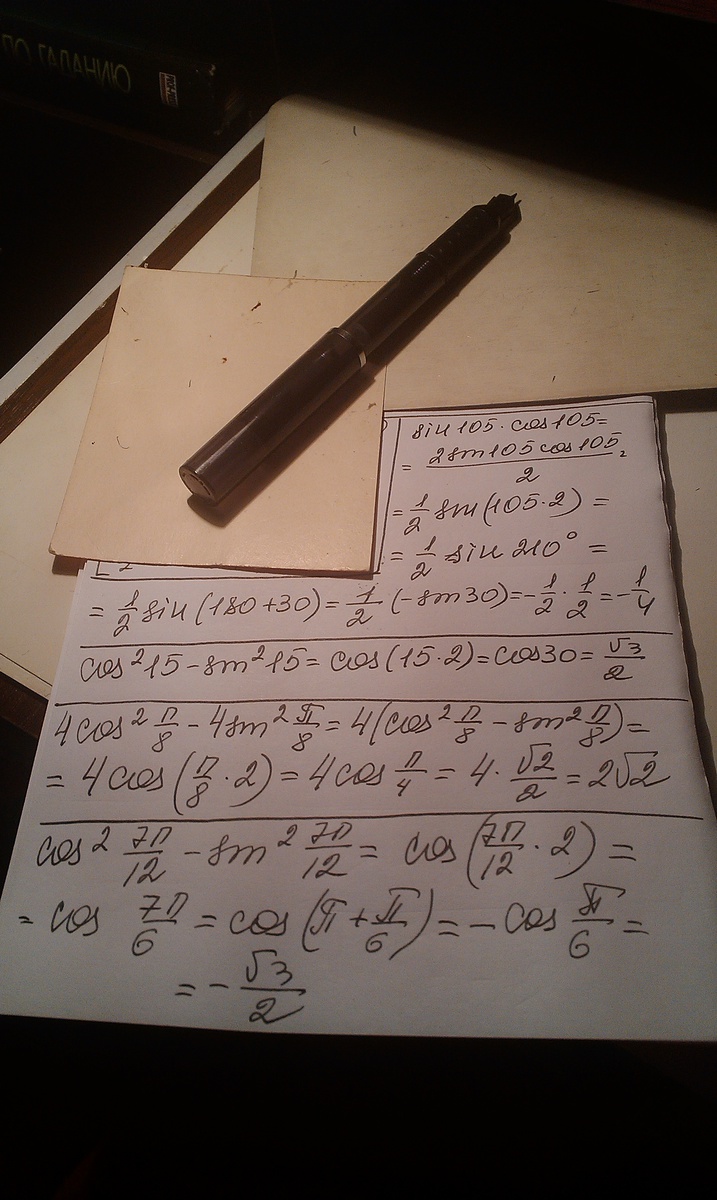 ПО ГАДАНИЮ
sin 105 · cos 105 =
= \frac{2 sin 105 cos 105}{2} =
= \frac{1}{2} sin (105 · 2) =
= \frac{1}{2} sin 210° =
= \frac{1}{2} sin (180 + 30) = \frac{1}{2} (- sin 30) = - \frac{1}{2} · \frac{1}{2} = - \frac{1}{4}
cos² 15 - sin² 15 = cos (15 · 2) = cos 30 = \frac{√3}{2}
4 cos² \frac{π}{8} - 4 sin² \frac{π}{8} = 4 (cos² \frac{π}{8} - sin² \frac{π}{8}) =
= 4 cos (\frac{π}{8} · 2) = 4 cos \frac{π}{4} = 4 · \frac{√2}{2} = 2√2
cos² \frac{7π}{12} - sin² \frac{7π}{12} = cos (\frac{7π}{12} · 2) =
= cos \frac{7π}{6} = cos (π + \frac{π}{6}) = - cos \frac{π}{6} =
= - \frac{√3}{2}